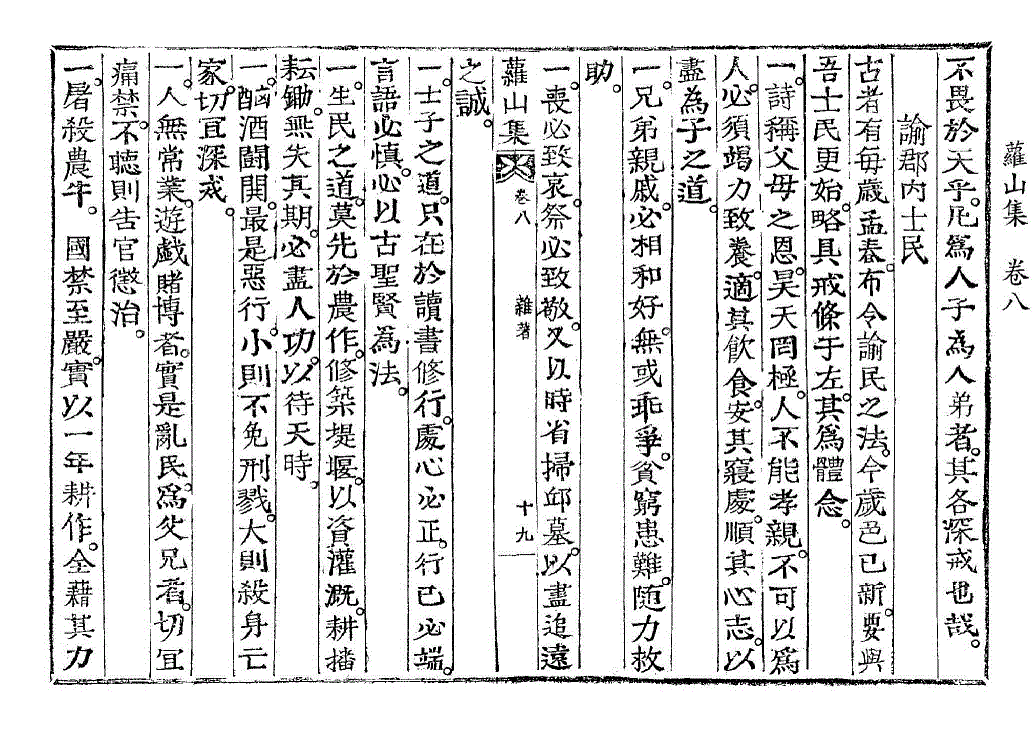 蘿山集　卷八
不畏於天乎。凡爲人子爲人弟者。其各深戒也哉。
諭郡内士民
古者有每歲孟春。布令諭民之法。今歲邑已新。要與
吾士民更始。略具戒條于左。其爲體念。
一。詩稱父母之恩。昊天罔極。人不能孝親。不可以爲
人。必須竭力致養。適其飮食。安其寢處。順其心志。以
盡爲子之道。
一。兄弟親戚。必相和好。無或乖爭。貧窮患難。隨力救
助。
一。喪必致哀。祭必致敬。又以時省掃邱墓。以盡追遠
蘿山集　卷八　雜著　十九
之誠。
一。士子之道。只在於讀書修行。處心必正。行已必端。
言語必愼。心以古聖賢爲法。
一。生民之道。莫先於農作。修築堤堰。以資灌漑。耕播
耘鋤。無失其期。必盡人功。以待天時。
一。酗酒鬪鬨。最是惡行。小則不免刑戮。大則殺身亡
家。切宜深戒。
一。人無常業。遊戲賭博者。實是亂民。爲父兄者。切宜
痛禁。不聽則告官懲治。
一。屠殺農牛。國禁至嚴。實以一年耕作。全藉其力